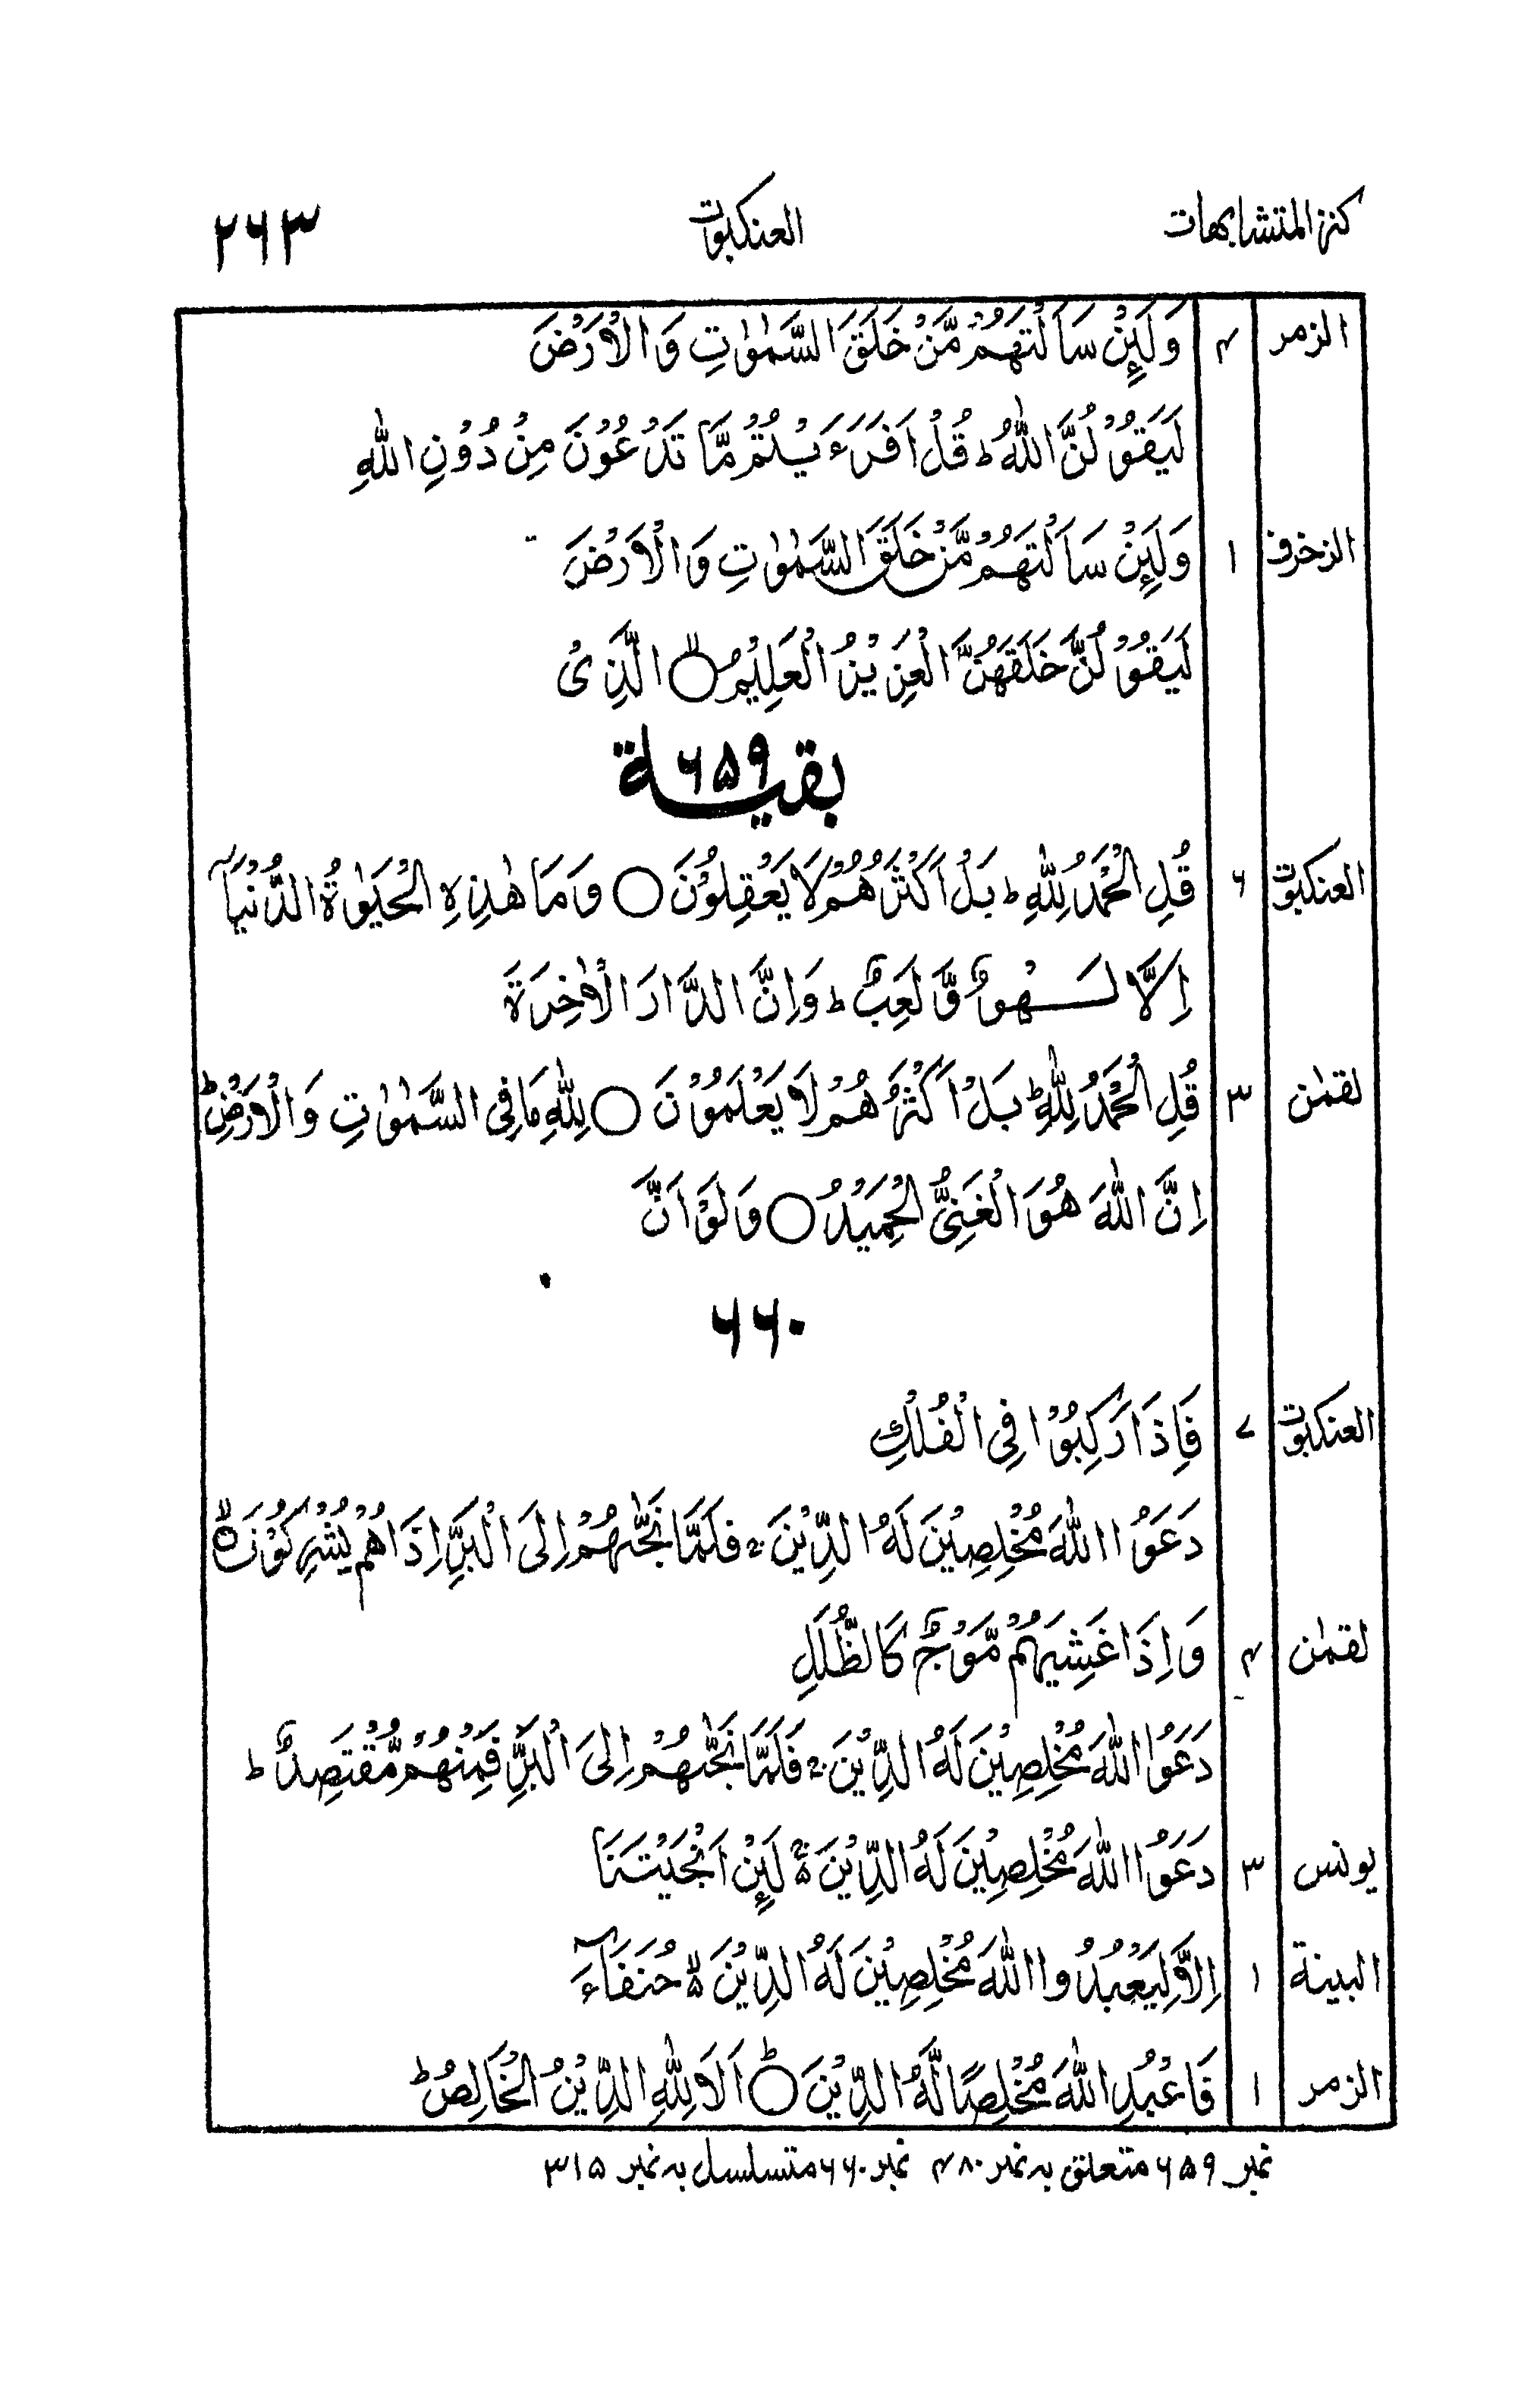 كنز المتشابهات العنكبوت ۲۶۳
الزمر ۴ وَلَئِنْ سَاَلْتَهُمْ مَّنْ خَلَقَ السَّمٰوٰتِ وَالْاَرْضَ
لَيَقُوْلُنَّ اللّٰهُ ؕ قُلْ اَفَرَءَيْتُمْ مَّا تَدْعُوْنَ مِنْ دُوْنِ اللّٰهِ
الزخرف ۱ وَلَئِنْ سَاَلْتَهُمْ مَّنْ خَلَقَ السَّمٰوٰتِ وَالْاَرْضَ
لَيَقُوْلُنَّ خَلَقَهُنَّ الْعَزِيْزُ الْعَلِيْمُ ۙ○ الَّذِىْ
بقية ۶۵۹
العنكبوت ۶ قُلِ الْحَمْدُ لِلّٰهِ ؕ بَلْ اَكْثَرُهُمْ لَا يَعْقِلُوْنَ ○ وَمَا هٰذِهِ الْحَيٰوةُ الدُّنْيَاۤ
اِلَّا لَهْوٌ وَّلَعِبٌ ؕ وَاِنَّ الدَّارَ الْاٰخِرَةَ
لقمٰن ۳ قُلِ الْحَمْدُ لِلّٰهِ ؕ بَلْ اَكْثَرُهُمْ لَا يَعْلَمُوْنَ ○ لِلّٰهِ مَا فِى السَّمٰوٰتِ وَالْاَرْضِ ؕ
اِنَّ اللّٰهَ هُوَ الْغَنِىُّ الْحَمِيْدُ ○ وَلَوْ اَنَّ
۶۶۰
العنكبوت ۷ فَاِذَا رَكِبُوْا فِى الْفُلْكِ
دَعَوُا اللّٰهَ مُخْلِصِيْنَ لَهُ الدِّيْنَ ۚ فَلَمَّا نَجّٰىهُمْ اِلَى الْبَرِّ اِذَا هُمْ يُشْرِكُوْنَ ۙ○
لقمٰن ۴ وَاِذَا غَشِيَهُمْ مَّوْجٌ كَالظُّلَلِ
دَعَوُا اللّٰهَ مُخْلِصِيْنَ لَهُ الدِّيْنَ ۚ فَلَمَّا نَجّٰىهُمْ اِلَى الْبَرِّ فَمِنْهُمْ مُّقْتَصِدٌ ؕ
يونس ۳ دَعَوُا اللّٰهَ مُخْلِصِيْنَ لَهُ الدِّيْنَ ۚ لَئِنْ اَنْجَيْتَنَا
البينة ۱ اِلَّا لِيَعْبُدُوا اللّٰهَ مُخْلِصِيْنَ لَهُ الدِّيْنَ ۙ حُنَفَآءَ
الزمر ۱ فَاعْبُدِ اللّٰهَ مُخْلِصًا لَّهُ الدِّيْنَ ؕ○ اَلَا لِلّٰهِ الدِّيْنُ الْخَالِصُ ؕ
نمبر ۶۵۹ متعلق به نمبر ۴۸۰ نمبر ۶۶۰ متسلسل به نمبر ۳۱۵